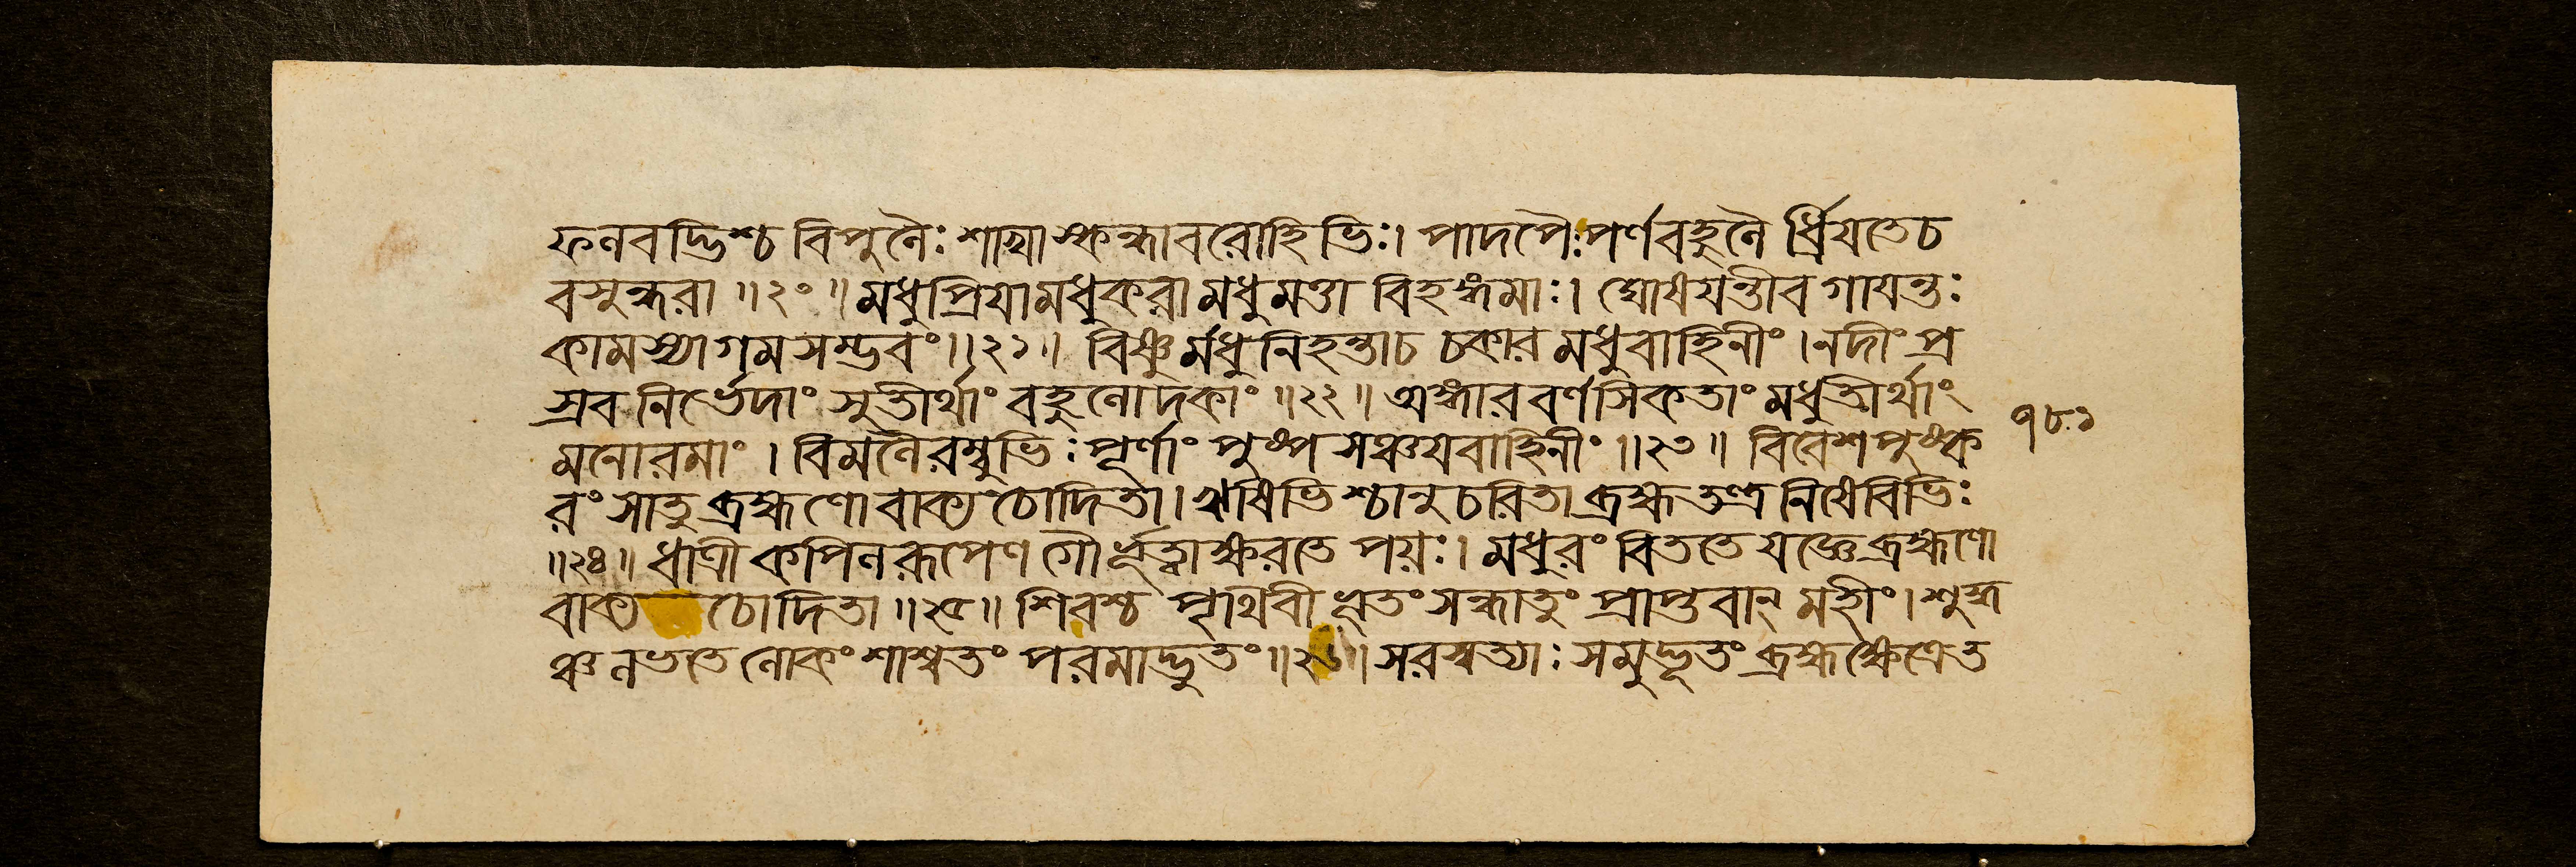 ফলবদ্ভিশ্চ বিপুলৈঃ শাখাস্কন্ধাবরোহিভিঃ। পাদপৈঃ পর্ণবহুলৈ র্ধ্রিযতেচ
বসুন্ধরা ॥২০॥ মধুপ্রিযামধুকরা মধুমত্তা বিহঙ্গমাঃ। ঘোষযন্তীব গাযন্তঃ
কামস্যাগমসম্ভবং॥২১॥ বিষ্ণুর্মধুনিহন্তাচ চকার মধুবাহিনীং। নদীং প্র
স্রব নির্ভেদাং সুতীর্থাং বহুলোদকাং ॥২২॥ অঙ্গারবর্ণসিকতাং মধুতীর্থাং
মনোরমাং। বিমলৈরম্বুভিঃ পূর্ণাং পুষ্পসঞ্চযবাহিনীং॥২৩॥ বিবেশপুষ্ক
রং সাতু ব্রহ্মণো বাক্যচোদিতা। ঋষিভিশ্চানুচরিতা ব্রহ্মতন্ত্রনিষেবিভিঃ
॥২৪॥ ধাত্রী কপিলরূপেণ গৌর্ভূত্বাক্ষরতে পয়ঃ। মধুরং বিততে যজ্ঞে ব্রহ্মণো
বাক্য চোদিতা ॥২৫॥ শিবশ্চ পৃথিবী ভূতং সন্ধাতুং প্রাপ্তবান্ মহীং। শুদ্ধ
ঞ্চ লভতে লোকং শাশ্বতং পরমাদ্ভুতং॥২৬॥ সরস্বত্যাঃ সমুদ্ভূতং ব্রহ্মক্ষেত্রেত
৭৮১